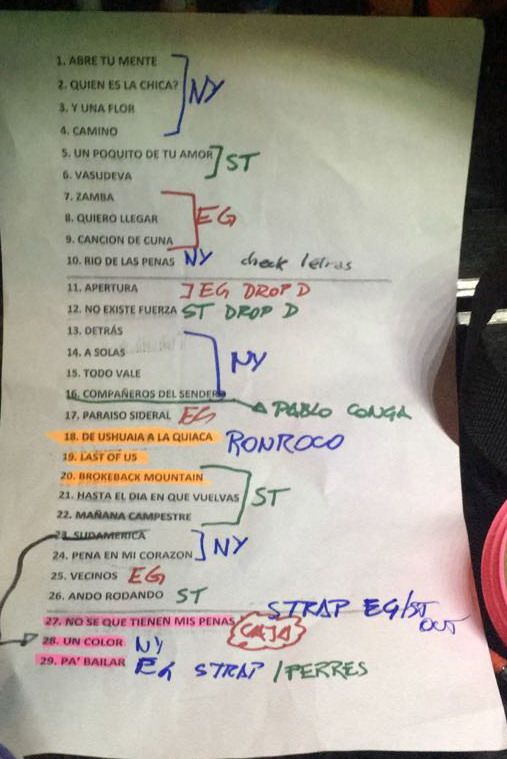 1. ABRE TU MENTE
2. QUIEN ES LA CHICA?
NY
3. Y UNA FLOR
4. CAMINO
5. UN POQUITO DE TU AMOR
ST
6. VASUDEVA
7. ZAMBA
8. QUIERO LLEGAR
EG
9. CANCION DE CUNA
10. RIO DE LAS PENAS NY check letras
11. APERTURA EG DROP D
12. NO EXISTE FUERZA ST DROP D
13. DETRÁS
14. A SOLAS
NY
15. TODO VALE
16. COMPAÑEROS DEL SENDERO
PABLO CONGA
17. PARAISO SIDERAL EG
18. DE USHUAIA A LA QUIACA RONROCO
19. LAST OF US
20. BROKEBACK MOUNTAIN
21. HASTA EL DIA EN QUE VUELVAS ST
22. MAÑANA CAMPESTRE
23. SUDAMERICA
24. PENA EN MI CORAZON NY
25. VECINOS EG
26. ANDO RODANDO ST
STRAP EG/ST OUT
27. NO SE QUE TIENEN MIS PENAS CAJA
28. UN COLOR NY
29. PA' BAILAR EG STRAP / PERRES